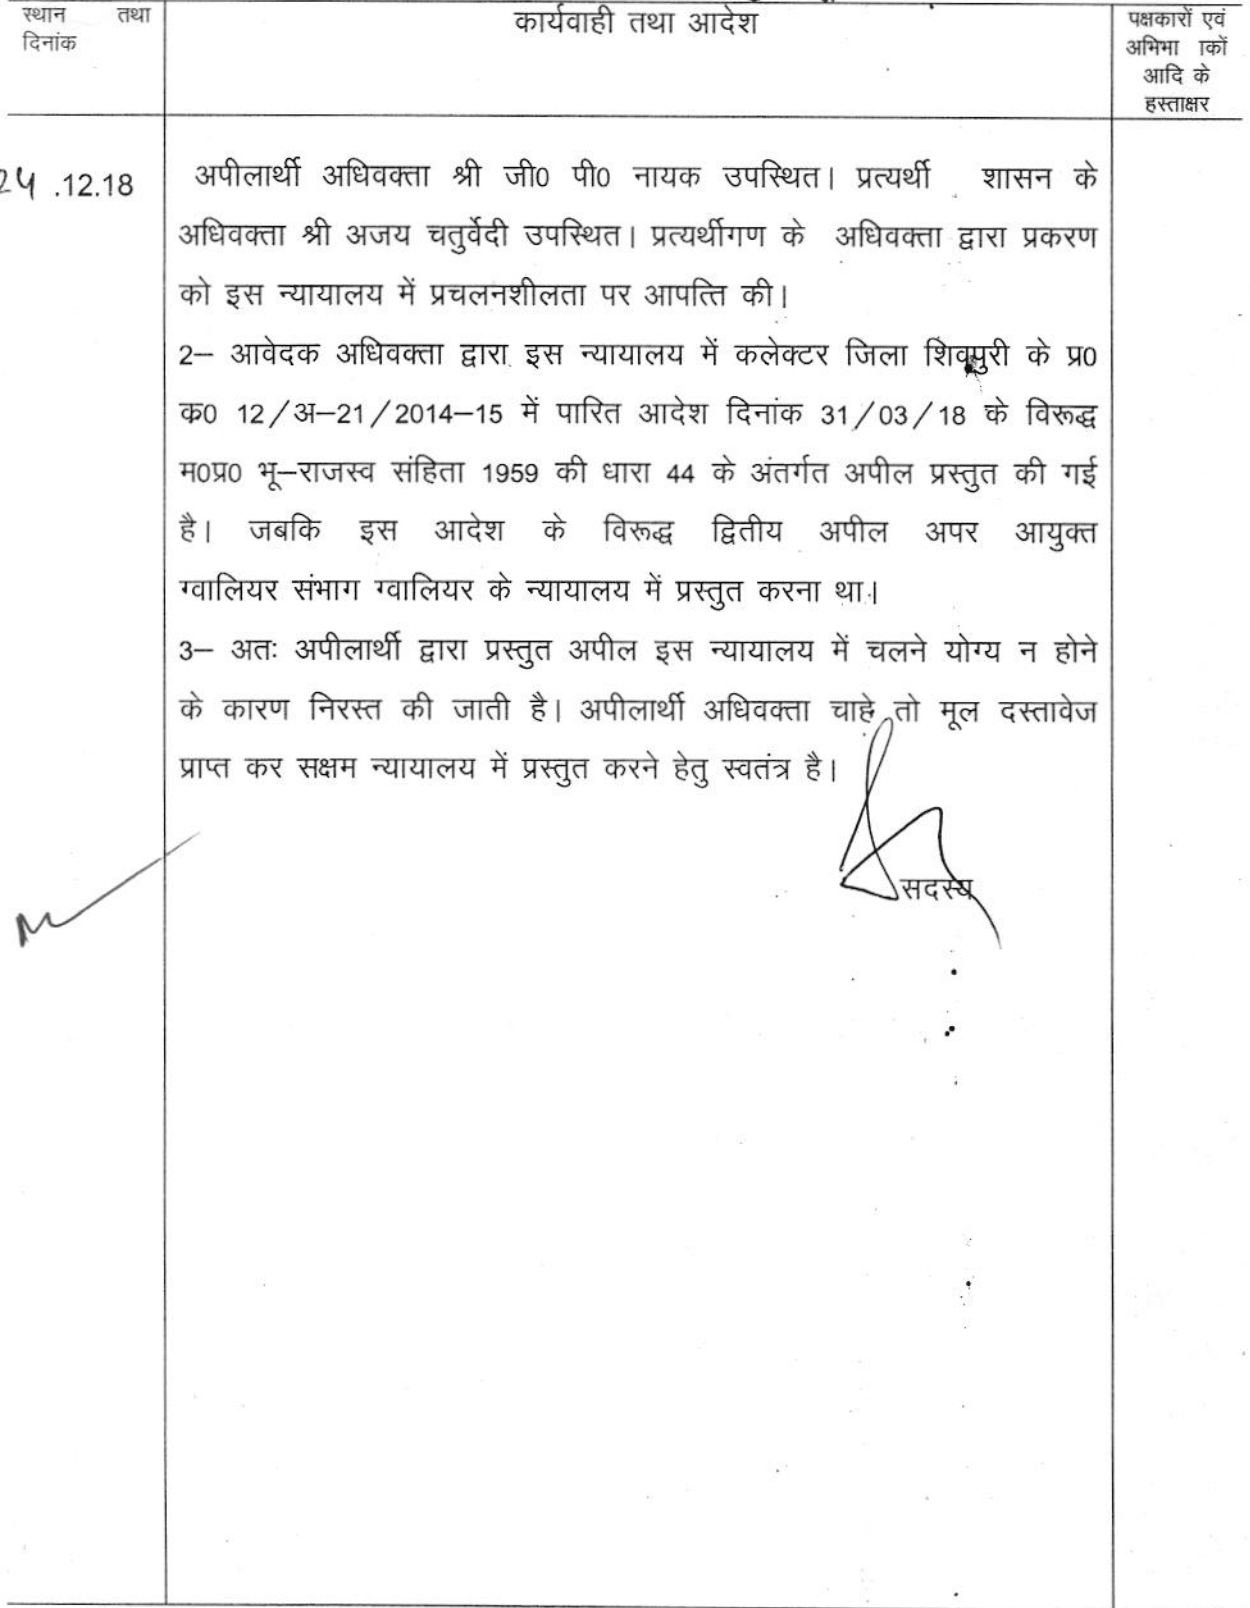 स्थान तथा
दिनांक
कार्यवाही तथा आदेश
पक्षकारों एवं
अभिभा ाकों
आदि के
हस्ताक्षर
24 .12.18
अपीलार्थी अधिवक्ता श्री जी0 पी0 नायक उपस्थित। प्रत्यर्थी शासन के
अधिवक्ता श्री अजय चतुर्वेदी उपस्थित। प्रत्यर्थीगण के अधिवक्ता द्वारा प्रकरण
को इस न्यायालय में प्रचलनशीलता पर आपत्ति की।
2– आवेदक अधिवक्ता द्वारा इस न्यायालय में कलेक्टर जिला शिवपुरी के प्र0
क0 12/अ–21/2014–15 में पारित आदेश दिनांक 31/03/18 के विरूद्ध
म0प्र0 भू–राजस्व संहिता 1959 की धारा 44 के अंतर्गत अपील प्रस्तुत की गई
है। जबकि इस आदेश के विरूद्ध द्वितीय अपील अपर आयुक्त
ग्वालियर संभाग ग्वालियर के न्यायालय में प्रस्तुत करना था।
3– अतः अपीलार्थी द्वारा प्रस्तुत अपील इस न्यायालय में चलने योग्य न होने
के कारण निरस्त की जाती है। अपीलार्थी अधिवक्ता चाहे तो मूल दस्तावेज
प्राप्त कर सक्षम न्यायालय में प्रस्तुत करने हेतु स्वतंत्र है।
सदस्य